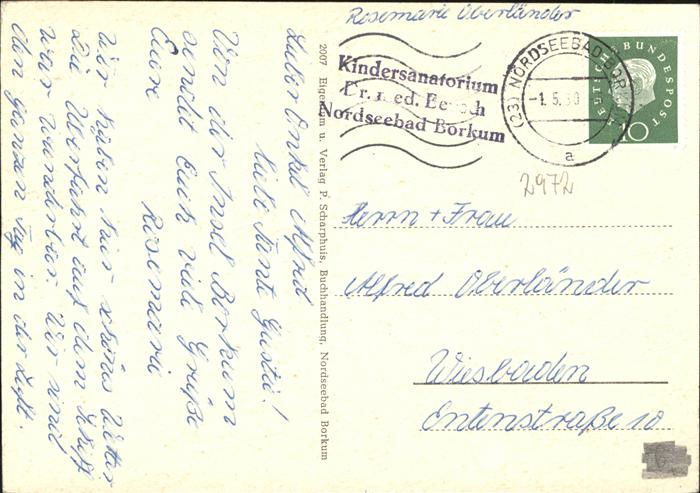 Lieber Onkel Alfred
liebe Tante Gustel!
Von der Insel Borkum
sendet Euch viele Grüße
Eure
Rosemarie
Wir haben hier schönes Wetter
Die Überfahrt auf dem Schiff
war wunderbar. Wir sind
den ganzen Tag in der Luft.
2007 Eigentum u. Verlag P. Scharphuis, Buchhandlung, Nordseebad Borkum
Rosemarie Oberländer
Kindersanatorium
Dr. med.
Nordseebad Borkum
(23) NORDSEEBAD
-1.5.60
a
DEUTSCHE BUNDESPOST
10
2972
Herrn + Frau
Alfred Oberländer
Wiesbaden
Entenstraße 10